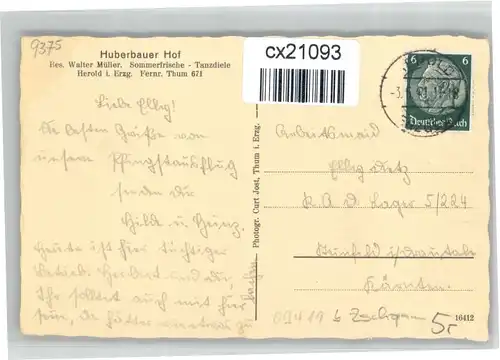 9375
Huberbauer Hof
Bes. Walter Müller. Sommerfrische - Tanzdiele
Herold i. Erzg. Fernr. Thum 671
cx21093
6 6
Deutsches Reich
Liebe Elly!
Die besten Grüße von
unserem Pfingstausflug
senden dir
Hilde u. Heinz.
Heute ist hier tüchtiger
Betrieb. Herbert und du,
Ihr solltet auch mit hier
sein, da hättet
Photogr. Curt Jost, Thum i. Erzg.
Arbeitsmaid
Elly
R.A.D. Lager 5/224
Kärnten.
09419 b Zschopau
5,-
16412